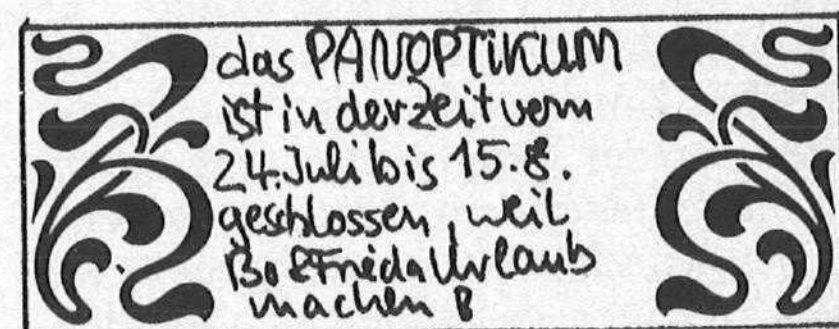 das PANOPTIKUM
ist in der Zeit vom
24. Juli bis 15.8.
geschlossen, weil
Bo & Frieda Urlaub
machen !